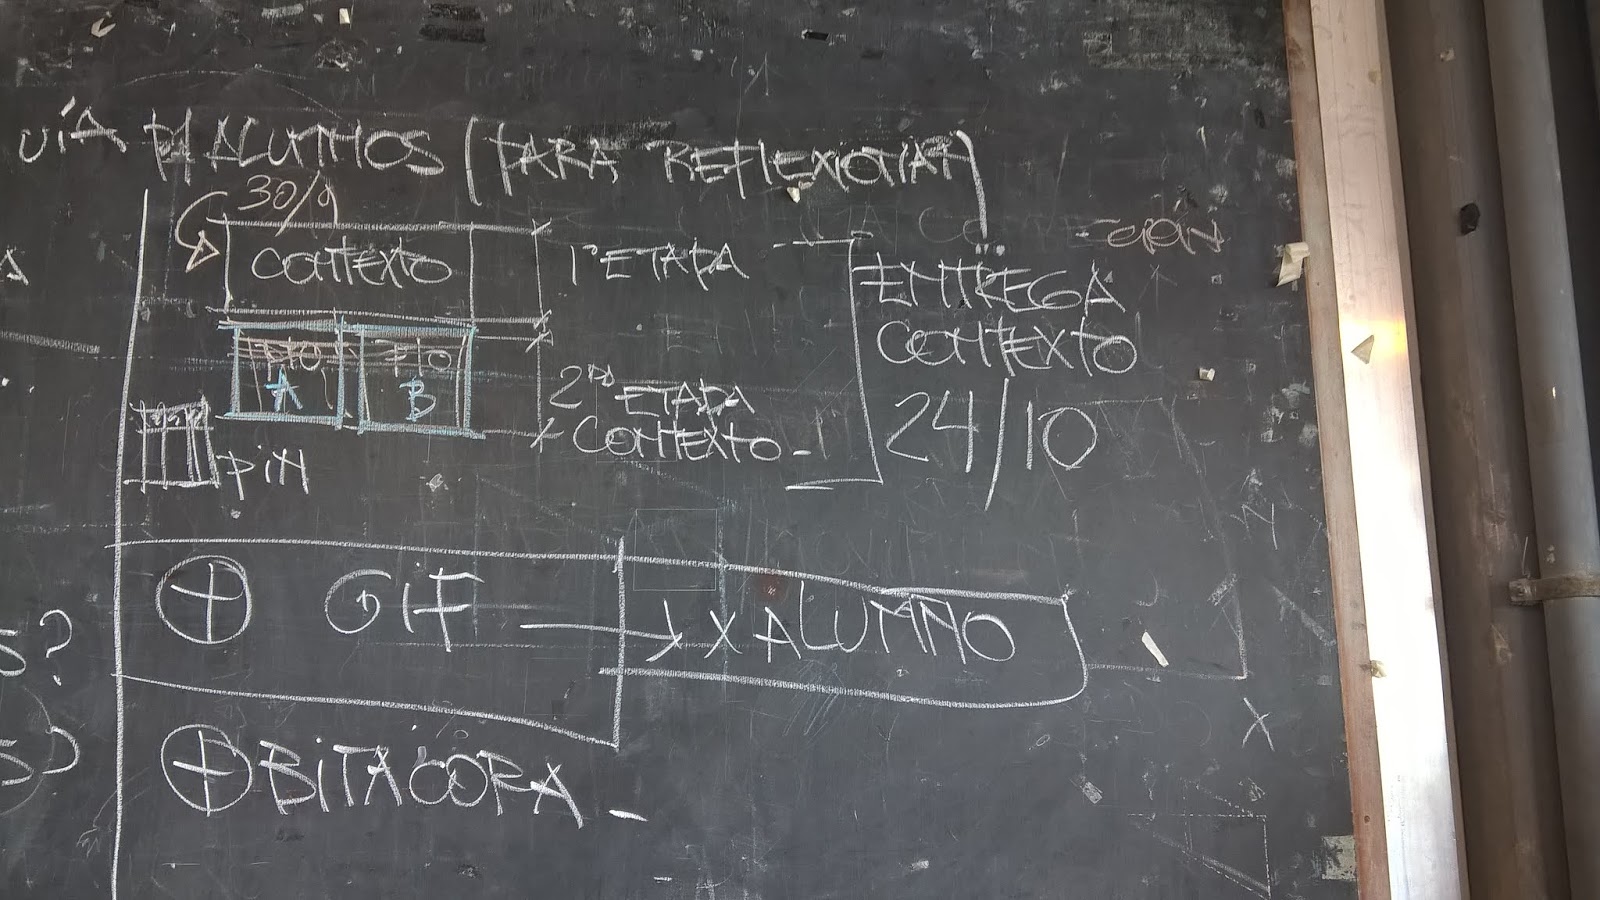 UÍA P/ALUMNOS (PARA REFLEXIONAR)
30/9
CONTEXTO
1º ETAPA
ENTREGA
CONTEXTO
24/10
PTO
A
PTO
B
2DA ETAPA
CONTEXTO-
DIN
+ GIF → X ALUMNO
+ BITACORA-
S?
S?